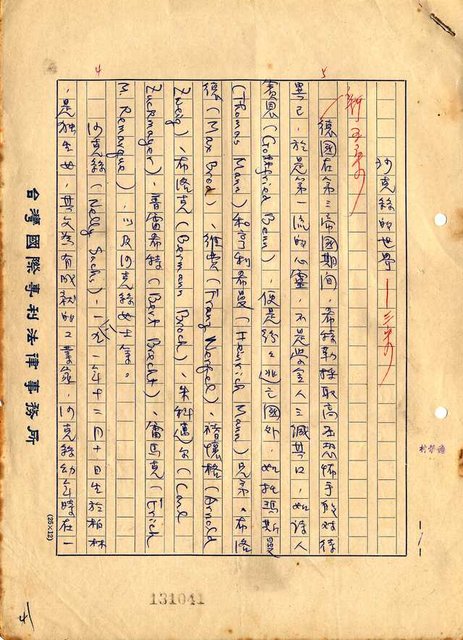 沙克絲的世界
德國在第三帝國期間，希特勒採取高壓恐怖手段對待
異己，於是第一流的心靈，不是學金人三緘其口，如詩人
賓恩（Gottfried Benn），便是紛紛逃亡國外，如托瑪斯曼
（Thomas Mann）和亨利希曼（Heinrich Mann）兄弟、布洛
德（Max Brod）、維費（Franz Werfel）、褚懷格（Arnold
Zweig）、布洛克（Hermann Broch）、朱科邁爾（Carl
Zuckmayer）、普雷希特（Bert Brecht）、雷馬克（Erich
M. Remarque），以及沙克絲女士等。
沙克絲（Nelly Sachs），一八九一年十二月十日生於柏林
，是獨生女，其父為有成就的工業家，沙克絲幼年時在一
台灣國際專利法律事務所
(25×12)
131041
4
5